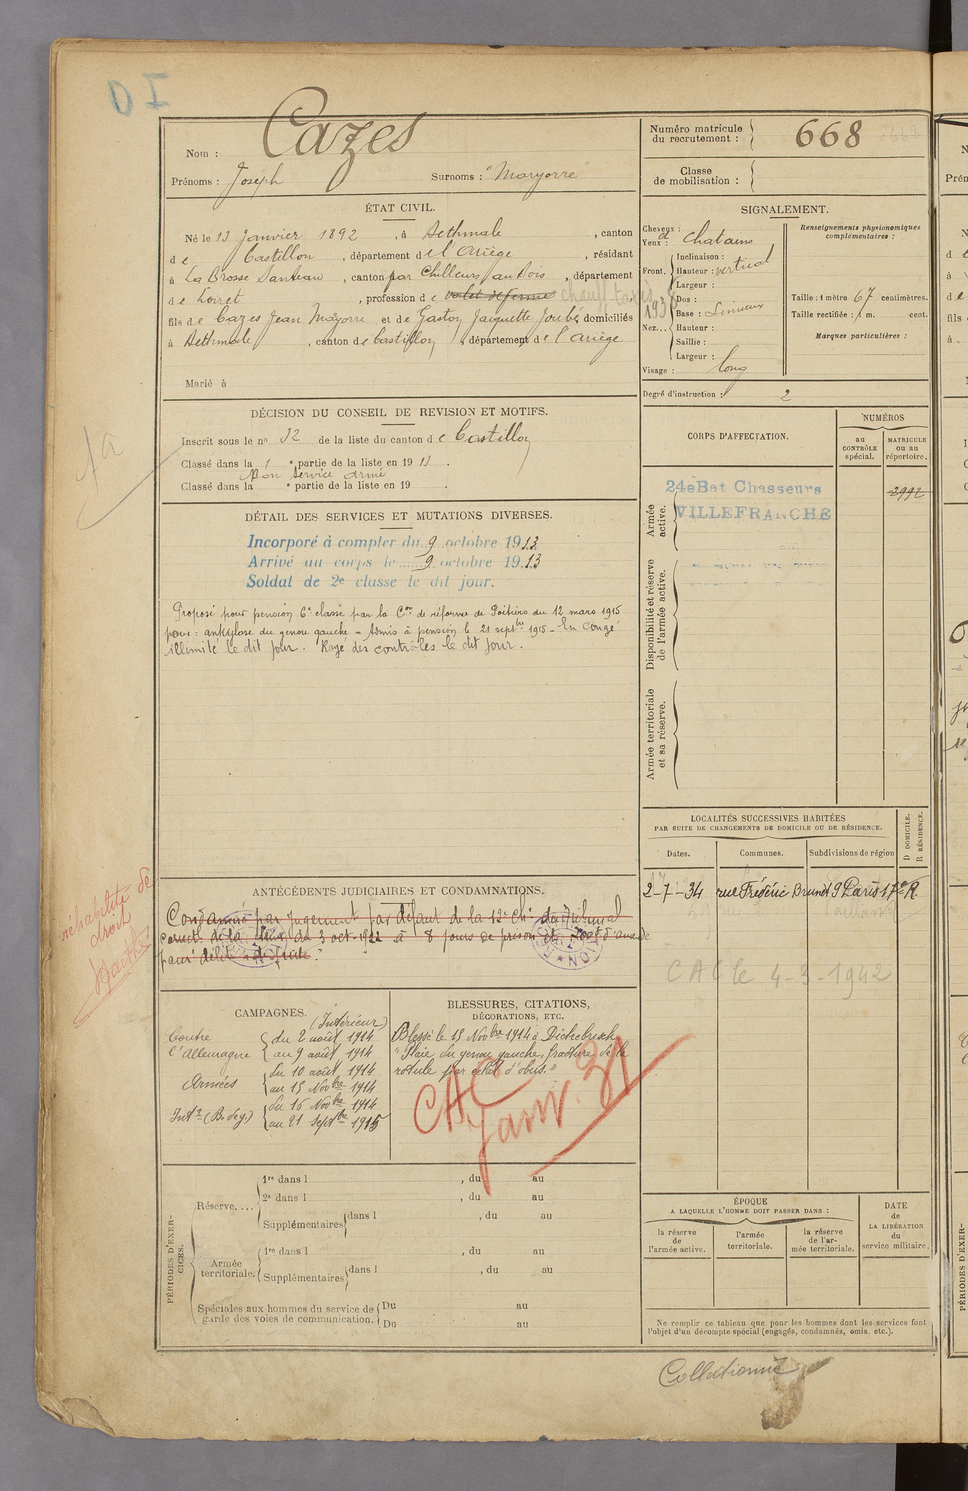 Nom : Cazes
Prénoms : Joseph Surnoms : "Maryorre"
Numéro matricule du recrutement : 668
Classe de mobilisation :
ÉTAT CIVIL.
Né le 13 Janvier 1892, à Sethmale, canton
de Castillon, département de l'Ariège, résidant
à La Brosse Santeau, canton par Chilleurs aux bois, département
de Loiret, profession de valet de ferme chauff. taxis
fils de Cazes Jean Mayorre et de Gaston Jacquette Joube, domiciliés
à Sethmale, canton de Castillon, département de l'Ariège
Marié à
SIGNALEMENT.
Cheveux :
Yeux : chatains
Front. Inclinaison :
Hauteur : vertical
Largeur :
Nez... Dos :
Base :
Hauteur :
Saillie :
Largeur :
Visage : long
Renseignements physionomiques complémentaires :
Taille : 1 mètre 67 centimètres.
Taille rectifiée : 1 m. cent.
Marques particulières :
Degré d'instruction : 2
DÉCISION DU CONSEIL DE REVISION ET MOTIFS.
Inscrit sous le n° 32 de la liste du canton de Castillon
Classé dans la 1e partie de la liste en 1913.
Bon Service armé
Classé dans la e partie de la liste en 19 .
DÉTAIL DES SERVICES ET MUTATIONS DIVERSES.
Incorporé à compter du 9 octobre 1913
Arrivé au corps le 9 octobre 1913
Soldat de 2e classe le dit jour.
Proposé pour pension 6e classe par la Con de réforme de Poitiers du 12 mars 1915
pour : ankylose du genou gauche - Admis à pension le 21 septbre 1915 - En congé
illimité le dit jour. Rayé des contrôles le dit jour.
CORPS D'AFFECTATION.
NUMÉROS
au CONTRÔLE spécial.
MATRICULE ou au répertoire.
Armée active.
24e Bat Chasseurs
VILLEFRANCHE
2992
Disponibilité et réserve de l'armée active.
Armée territoriale et sa réserve.
LOCALITÉS SUCCESSIVES HABITÉES
PAR SUITE DE CHANGEMENTS DE DOMICILE OU DE RÉSIDENCE.
Dates. Communes. Subdivisions de région
D DOMICILE.
R RÉSIDENCE.
2-7-34 rue Frédéric Brunet 9 Paris 17e R
CAC le 4-3-1942
réhabilité de
droit
ANTÉCÉDENTS JUDICIAIRES ET CONDAMNATIONS.
Condamné par jugement par défaut de la 12e Ch. du Tribunal
correct. de la Seine du 3 oct. 1922 à 8 jours de prison et 200f d'amende
pour délit de fuite.
CAMPAGNES.
(Intérieur)
Contre l'Allemagne du 2 août 1914
au 9 août 1914
Armées du 10 août 1914
au 15 Novbre 1914
Intr (B. de g.) du 16 Novbre 1914
au 21 Septbre 1915
BLESSURES, CITATIONS,
DÉCORATIONS, ETC.
Blessé le 15 Novbre 1914 à Dickebusch
"Plaie du genou gauche, fracture de la
rotule par éclat d'obus."
CAC
Janv. 31
PÉRIODES D'EXERCICES.
Réserve.... 1re dans l , du au
2e dans l , du au
Supplémentaires dans l , du au
Armée territoriale. 1re dans l , du au
Supplémentaires dans l , du au
Spéciales aux hommes du service de garde des voies de communication. Du au
Du au
ÉPOQUE
A LAQUELLE L'HOMME DOIT PASSER DANS :
la réserve de l'armée active.
l'armée territoriale.
la réserve de l'armée territoriale.
DATE de LA LIBÉRATION du service militaire.
Ne remplir ce tableau que pour les hommes dont les services font
l'objet d'un décompte spécial (engagés, condamnés, omis, etc.).
Collationné